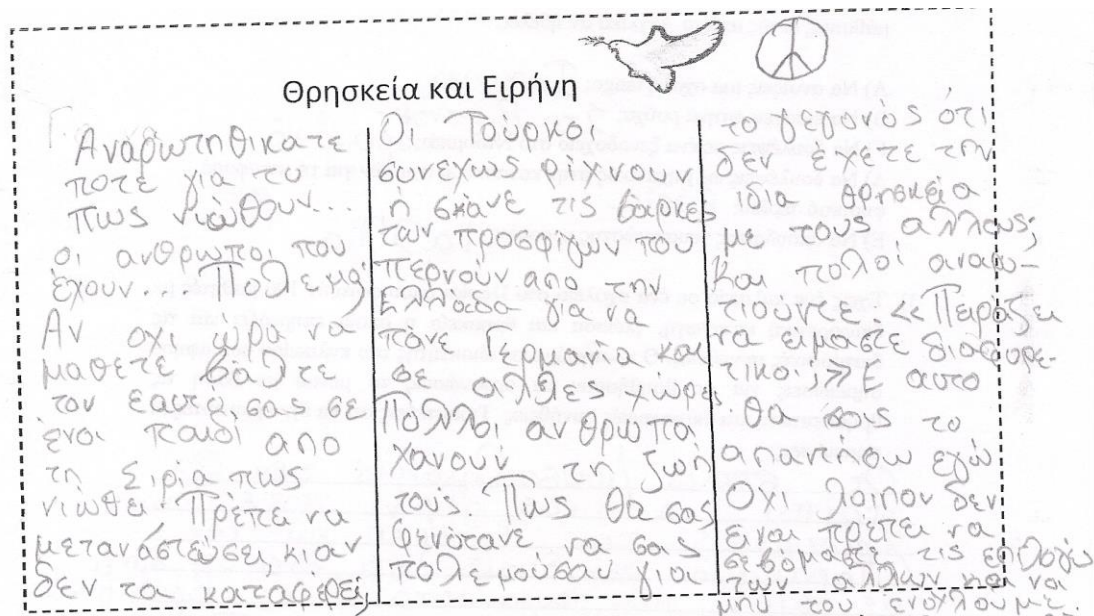 Θρησκεία και Ειρήνη
Αναρωτηθικατε
ποτε για το
πως νιώθουν...
οι ανθρωποι που
έχουν... Πολεμο;
Αν οχι ώρα να
μαθετε βαλτε
τον εαυτο σας σε
ένα παιδί απο
τη Σιρία πως
νιώθει. Πρέπει να
μεταναστεύσει κι αν
δεν τα καταφέρει;
Οι Τούρκοι
συνεχως ρίχνουν
ή σκανε τις βαρκες
των προσφίγων που
περνούν απο την
Ελλάδα για να
πάνε Γερμανία και
σε αλλες χώρες
Πολλοι ανθρωποι
χανουν τη ζωή
τους. Πως θα σας
φενότανε να σας
πολεμούσαν για
το γεγονός ότι
δεν έχετε την
ίδια θρησκεία
με τους αλλους;
Και πολοί αναρω-
τιούντε: <<Πειράζει
να είμαστε διαφορε-
τικοι>> Σ αυτο
θα σας το
απαντήσω εγώ
Οχι λοιπον δεν
ειναι πρέπει να
σεβόμαστε τις επιλογές
των αλλων και να
μην του ενοχλουμε.